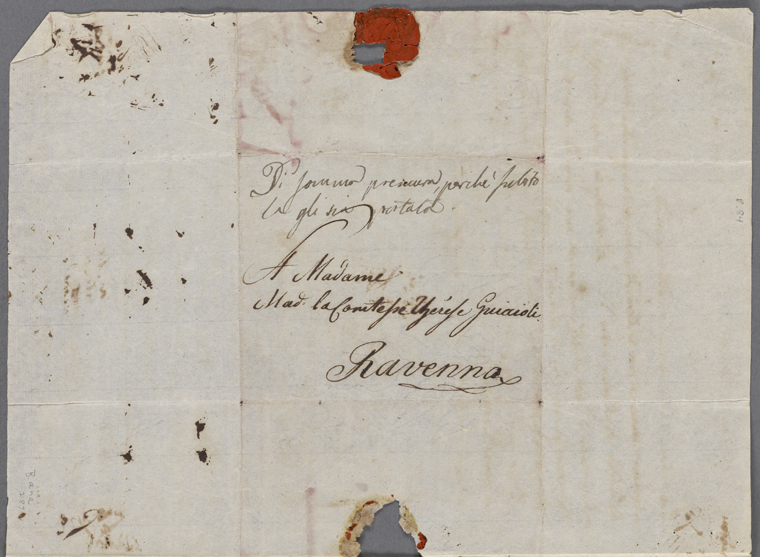 Di somma premura, perché subito
la gli sia portata.
A Madame
Mad. la Comtesse Thérèse Guiccioli.
Ravenna